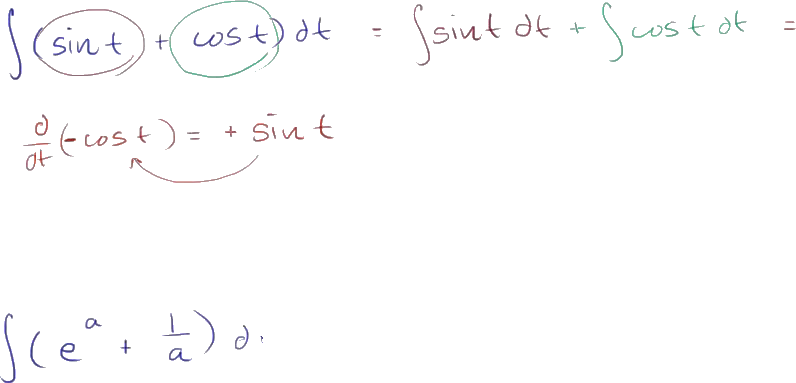 ∫(sin t + cos t) dt = ∫sin t dt + ∫cos t dt =
d/dt (-cos t) = + sin t
∫(e^a + 1/a) d